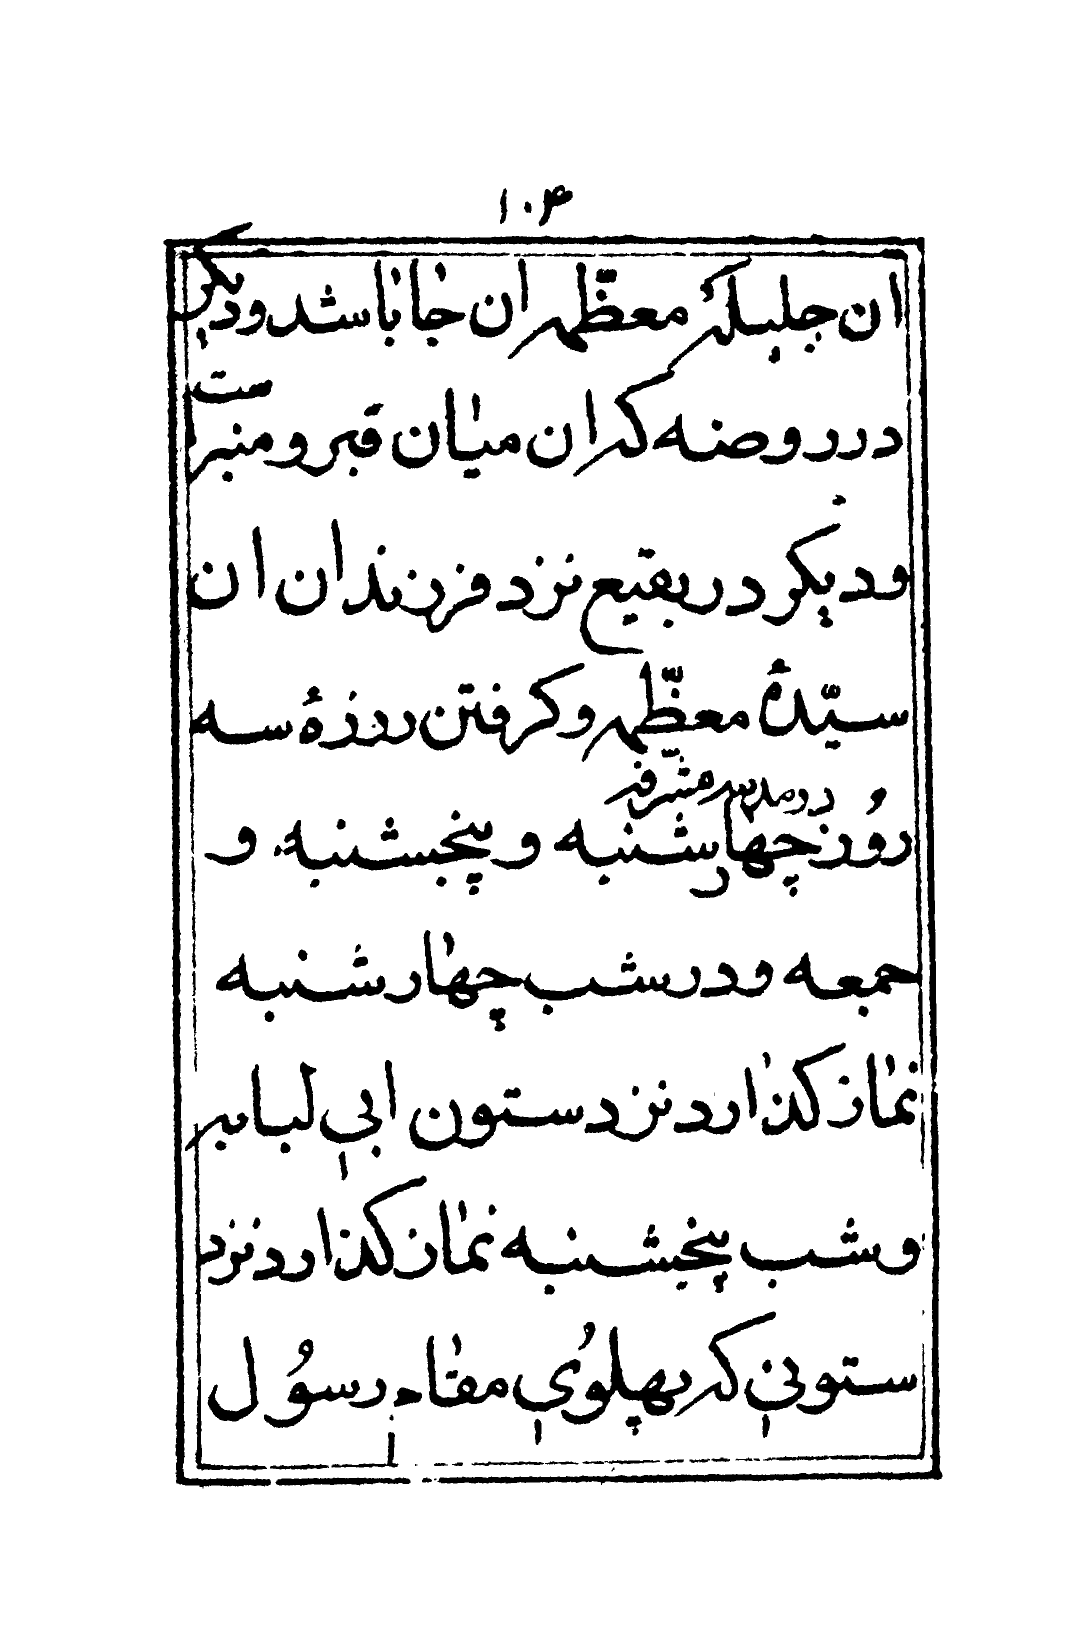 ۱۰۴
ان جلیلهٔ معظّمه ان جا باشد و دیکر
در روضه که ان میان قبر و منبر است
و دیکر در بقیع نزد فرزندان ان
سیّدهٔ معظّمه و کرفتن روزهٔ سه
در مدینه مشرفه
روُز چهار شنبه و پنجشنبه و
جمعه و در شب چهار شنبه
نماز کذارد نزد ستون ابی لبابه
و شب پنجشنبه نماز کذارد نزد
ستونی که پهلوُی مقام رسوُل